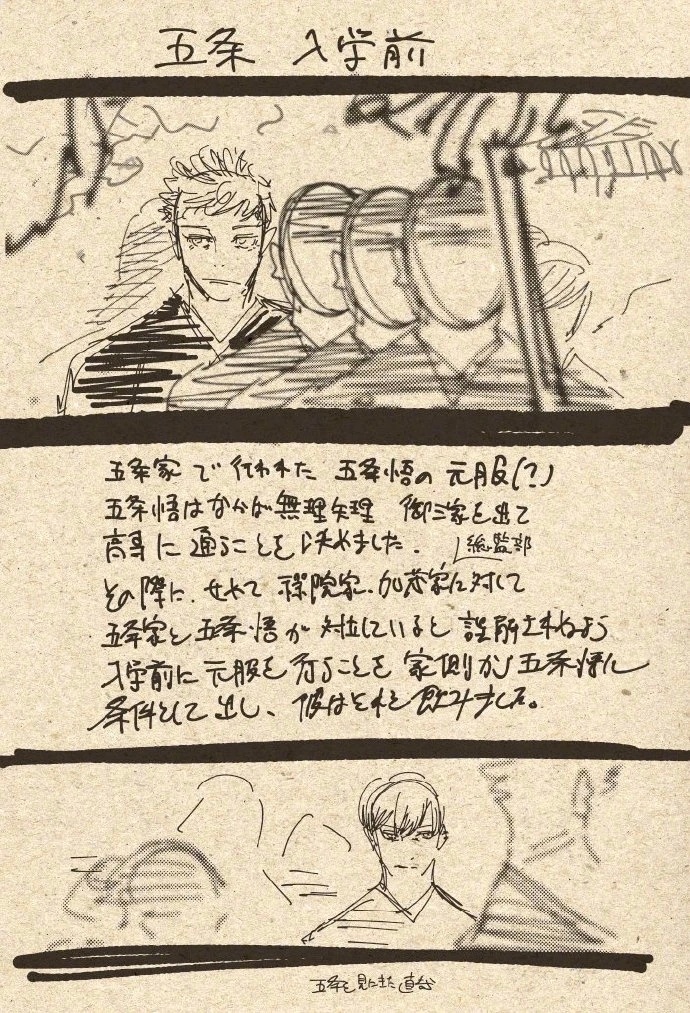 五条 入学前
五条家で行われた 五条悟の 元服(?)
五条悟はなかば無理矢理 御三家を出て
高専に通うことを決めました.
総監部
その際に、せめて 禪院家、加茂家に対して
五条家と五条悟が 対立していると 誤解されぬよう
入学前に元服を行うことを 家側から五条悟に
条件として出し、彼はそれを飲みました。
五条を見にきた直哉